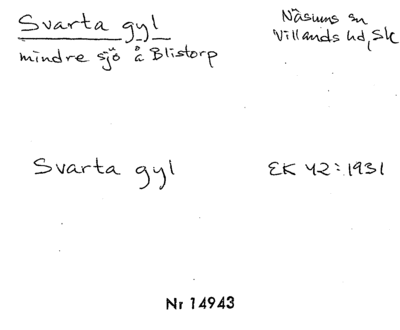 Svarta gyl
mindre sjö å Blistorp
Näsums sn
Villands hd, Sk
Svarta gyl
EK 42:1931
Nr 14943